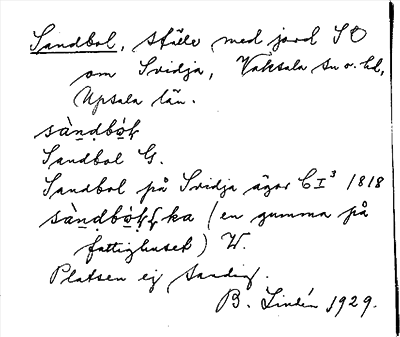 Sandbol, ställe med jord SO
om Svidja, Vaksala sn o. hd,
Upsala län.
sàndbó̱ḷ
Sandbol G.
Sandbol på Svidja ägor C I³ 1818
sàndbó̱ḷḷka (en gumma på
fattighuset) W.
Platsen ej sandig.
B. Lindén 1929.